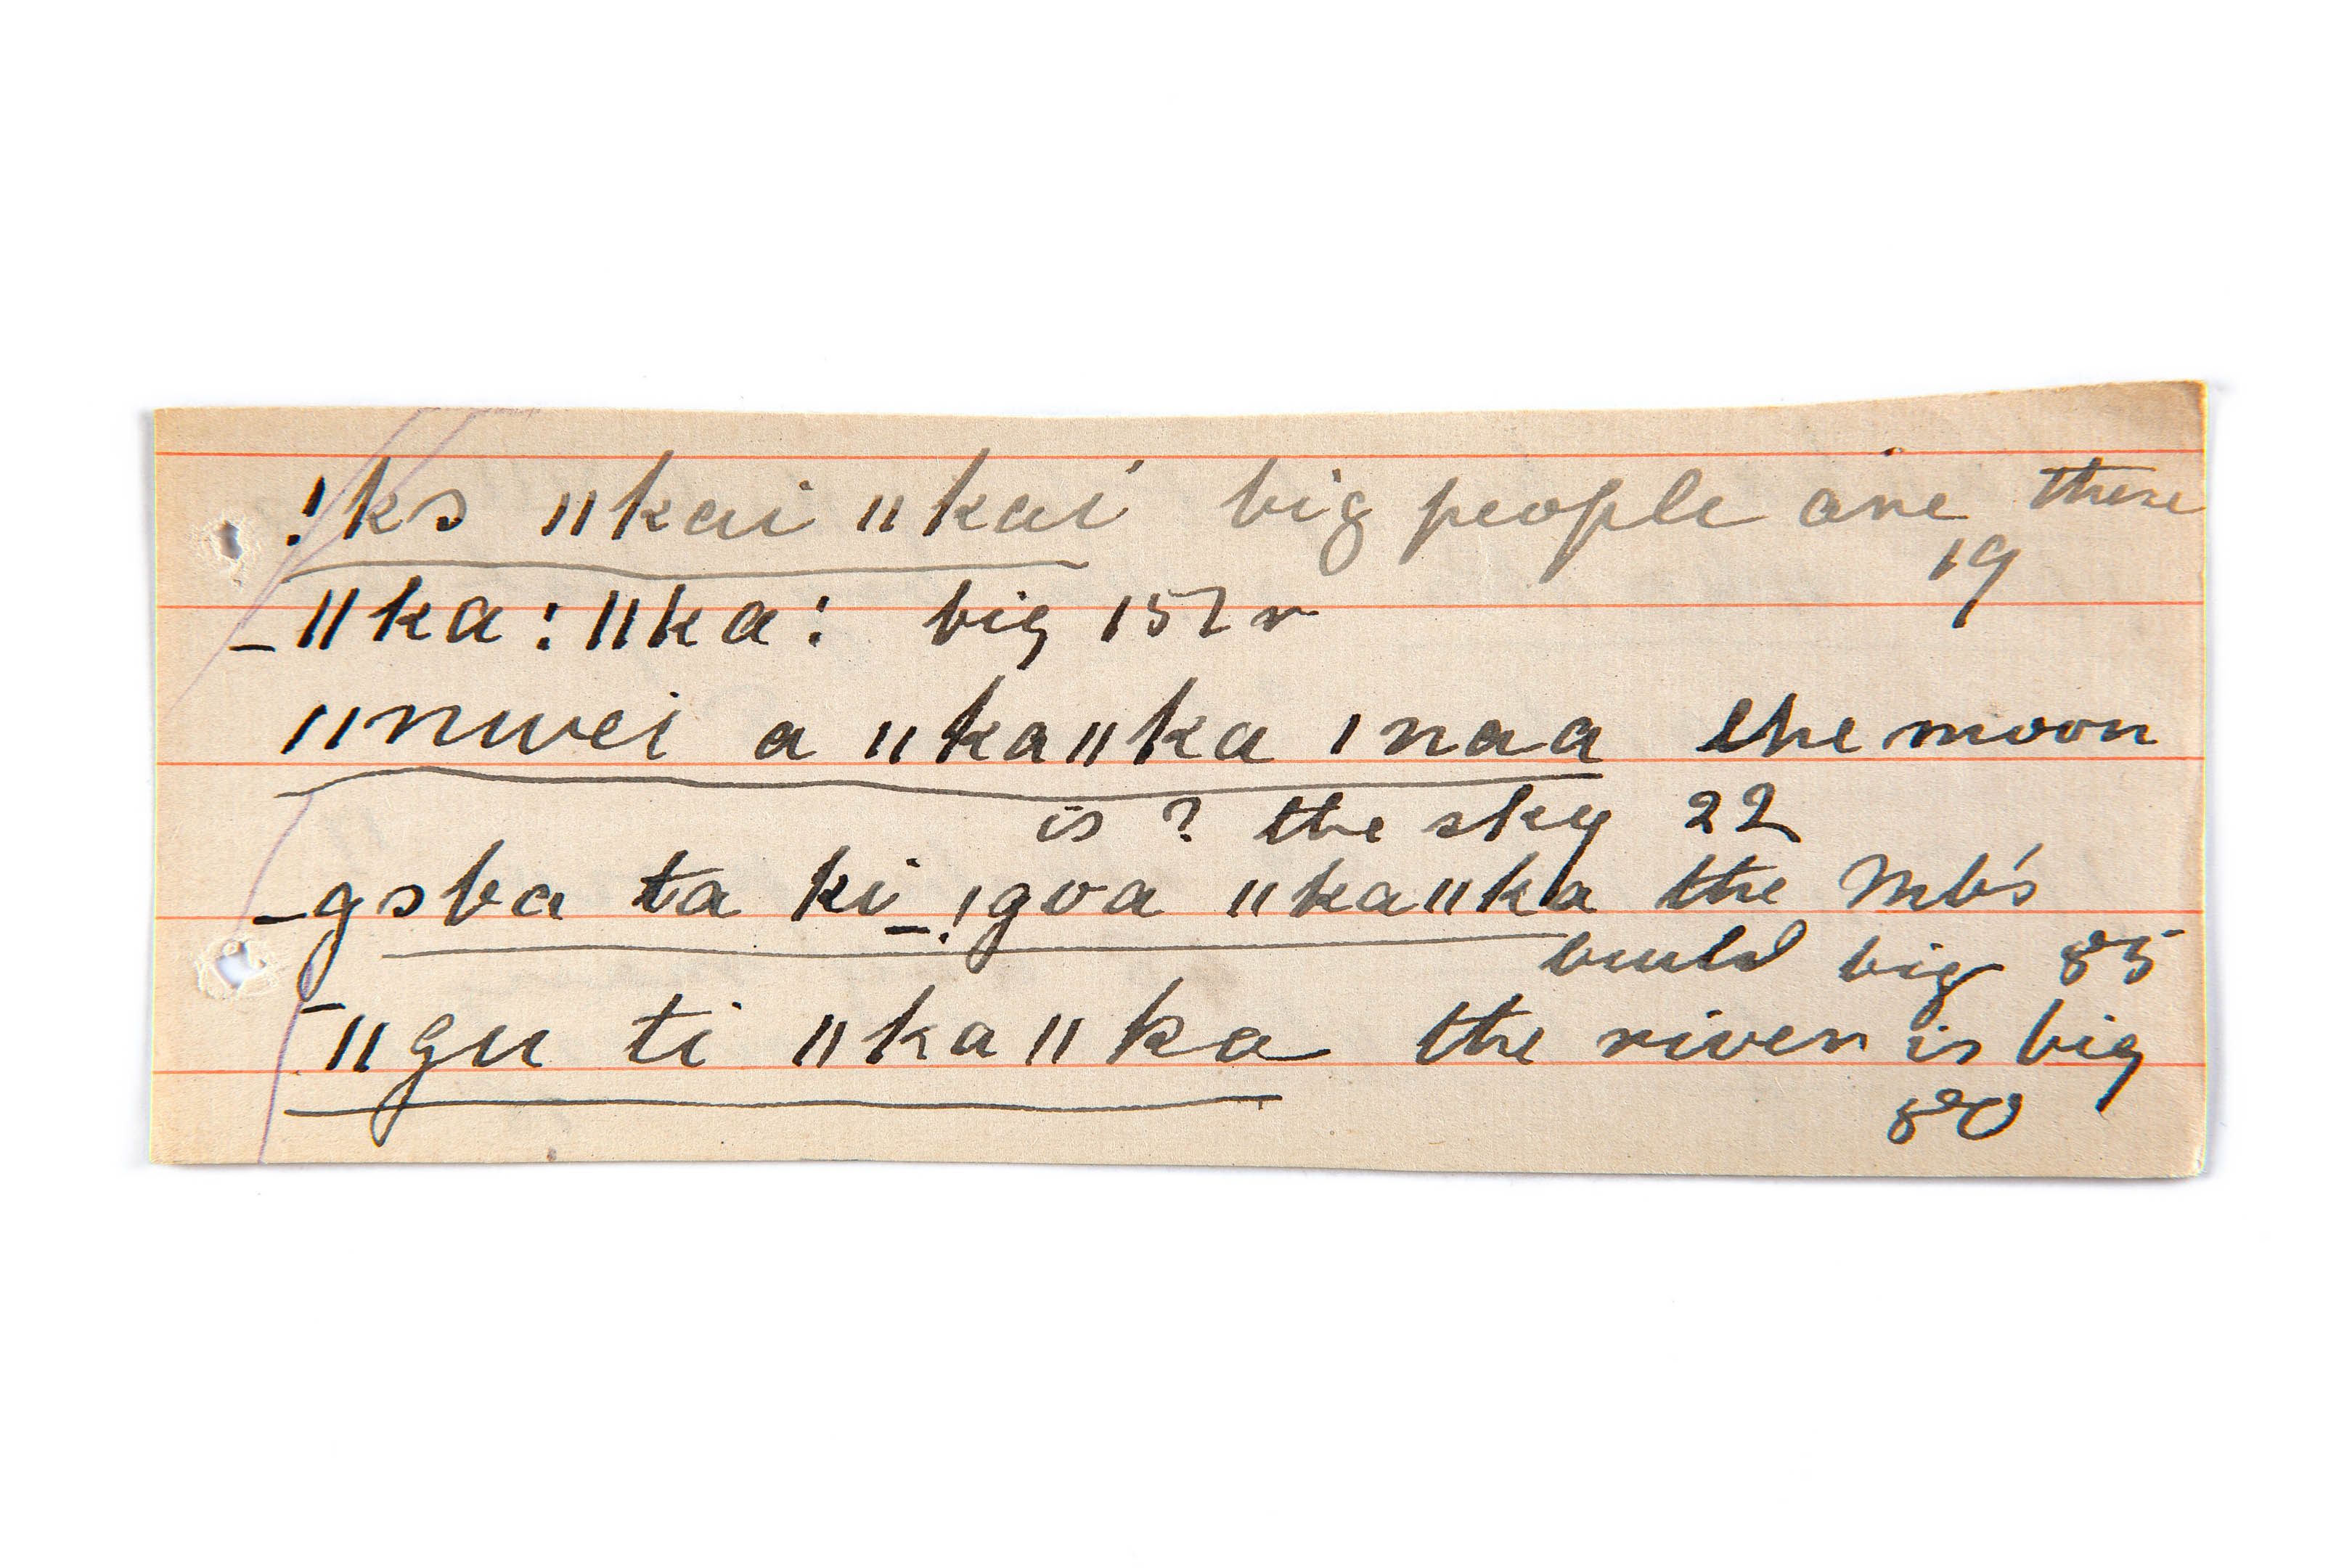 !ks ǁkai ǁkai big people are there
19
_ǁka:ǁka: big 157 r
ǁnwei a ǁkaǁka ǀnaa the moon
is ? the sky 22
_gsba ta ki _!goa ǁkaǁka the Mb's
build big 85
‾ǁgu ti ǁkaǁka the river is big
80